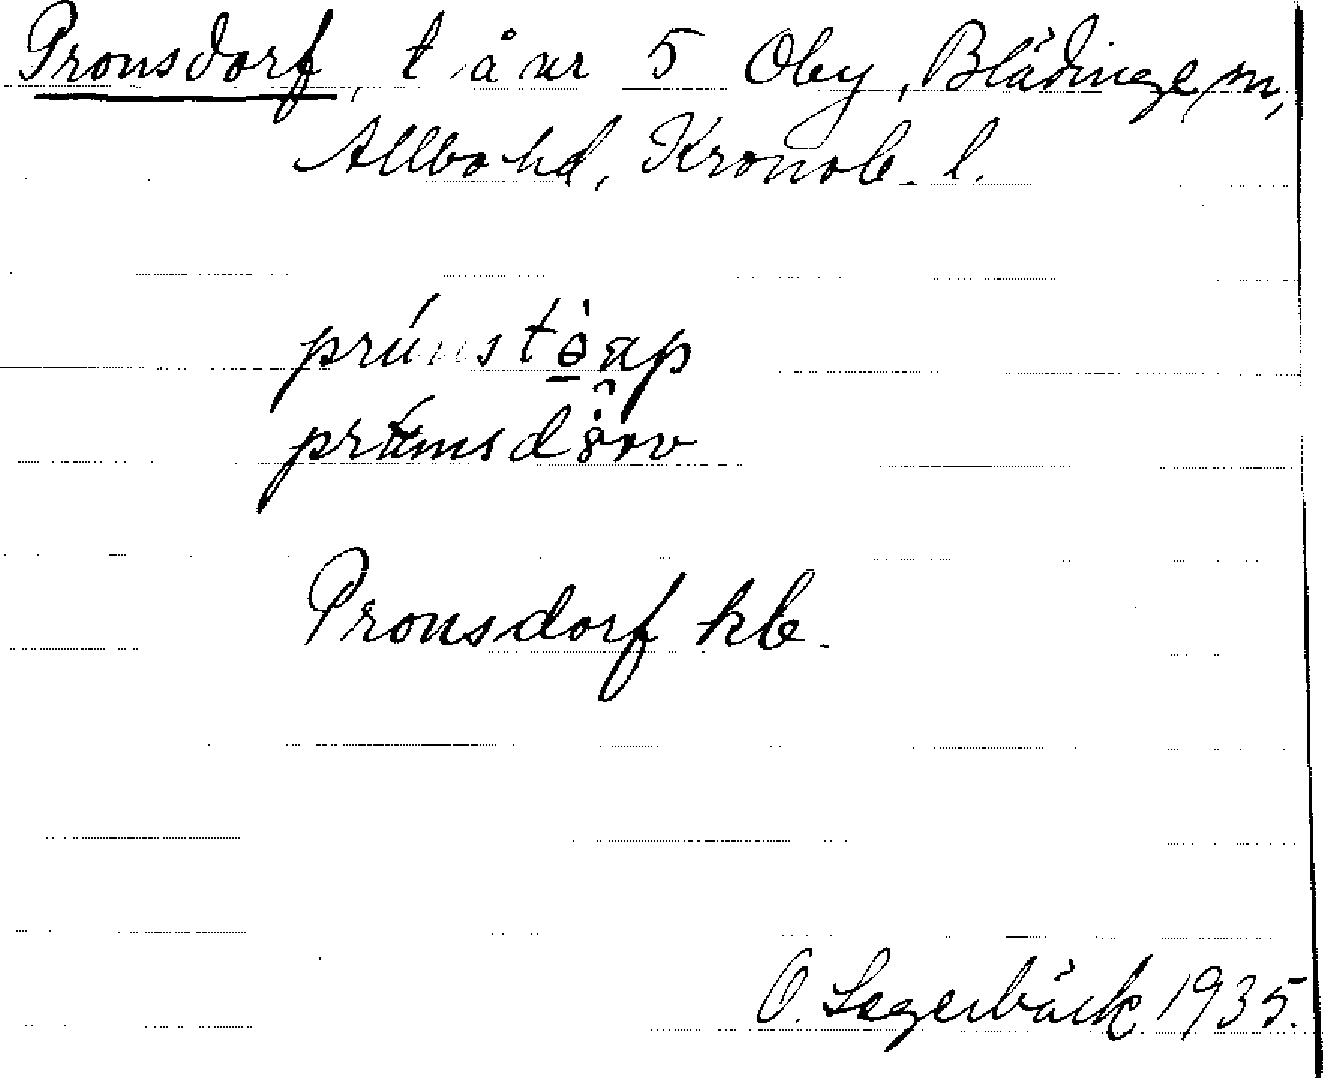 Pronsdorf, t å nr 5 Oby, Blädinge sn,
Allbo hd, Kronob. l.
Pronsdorf kb.
O. Lagerbäck 1935.